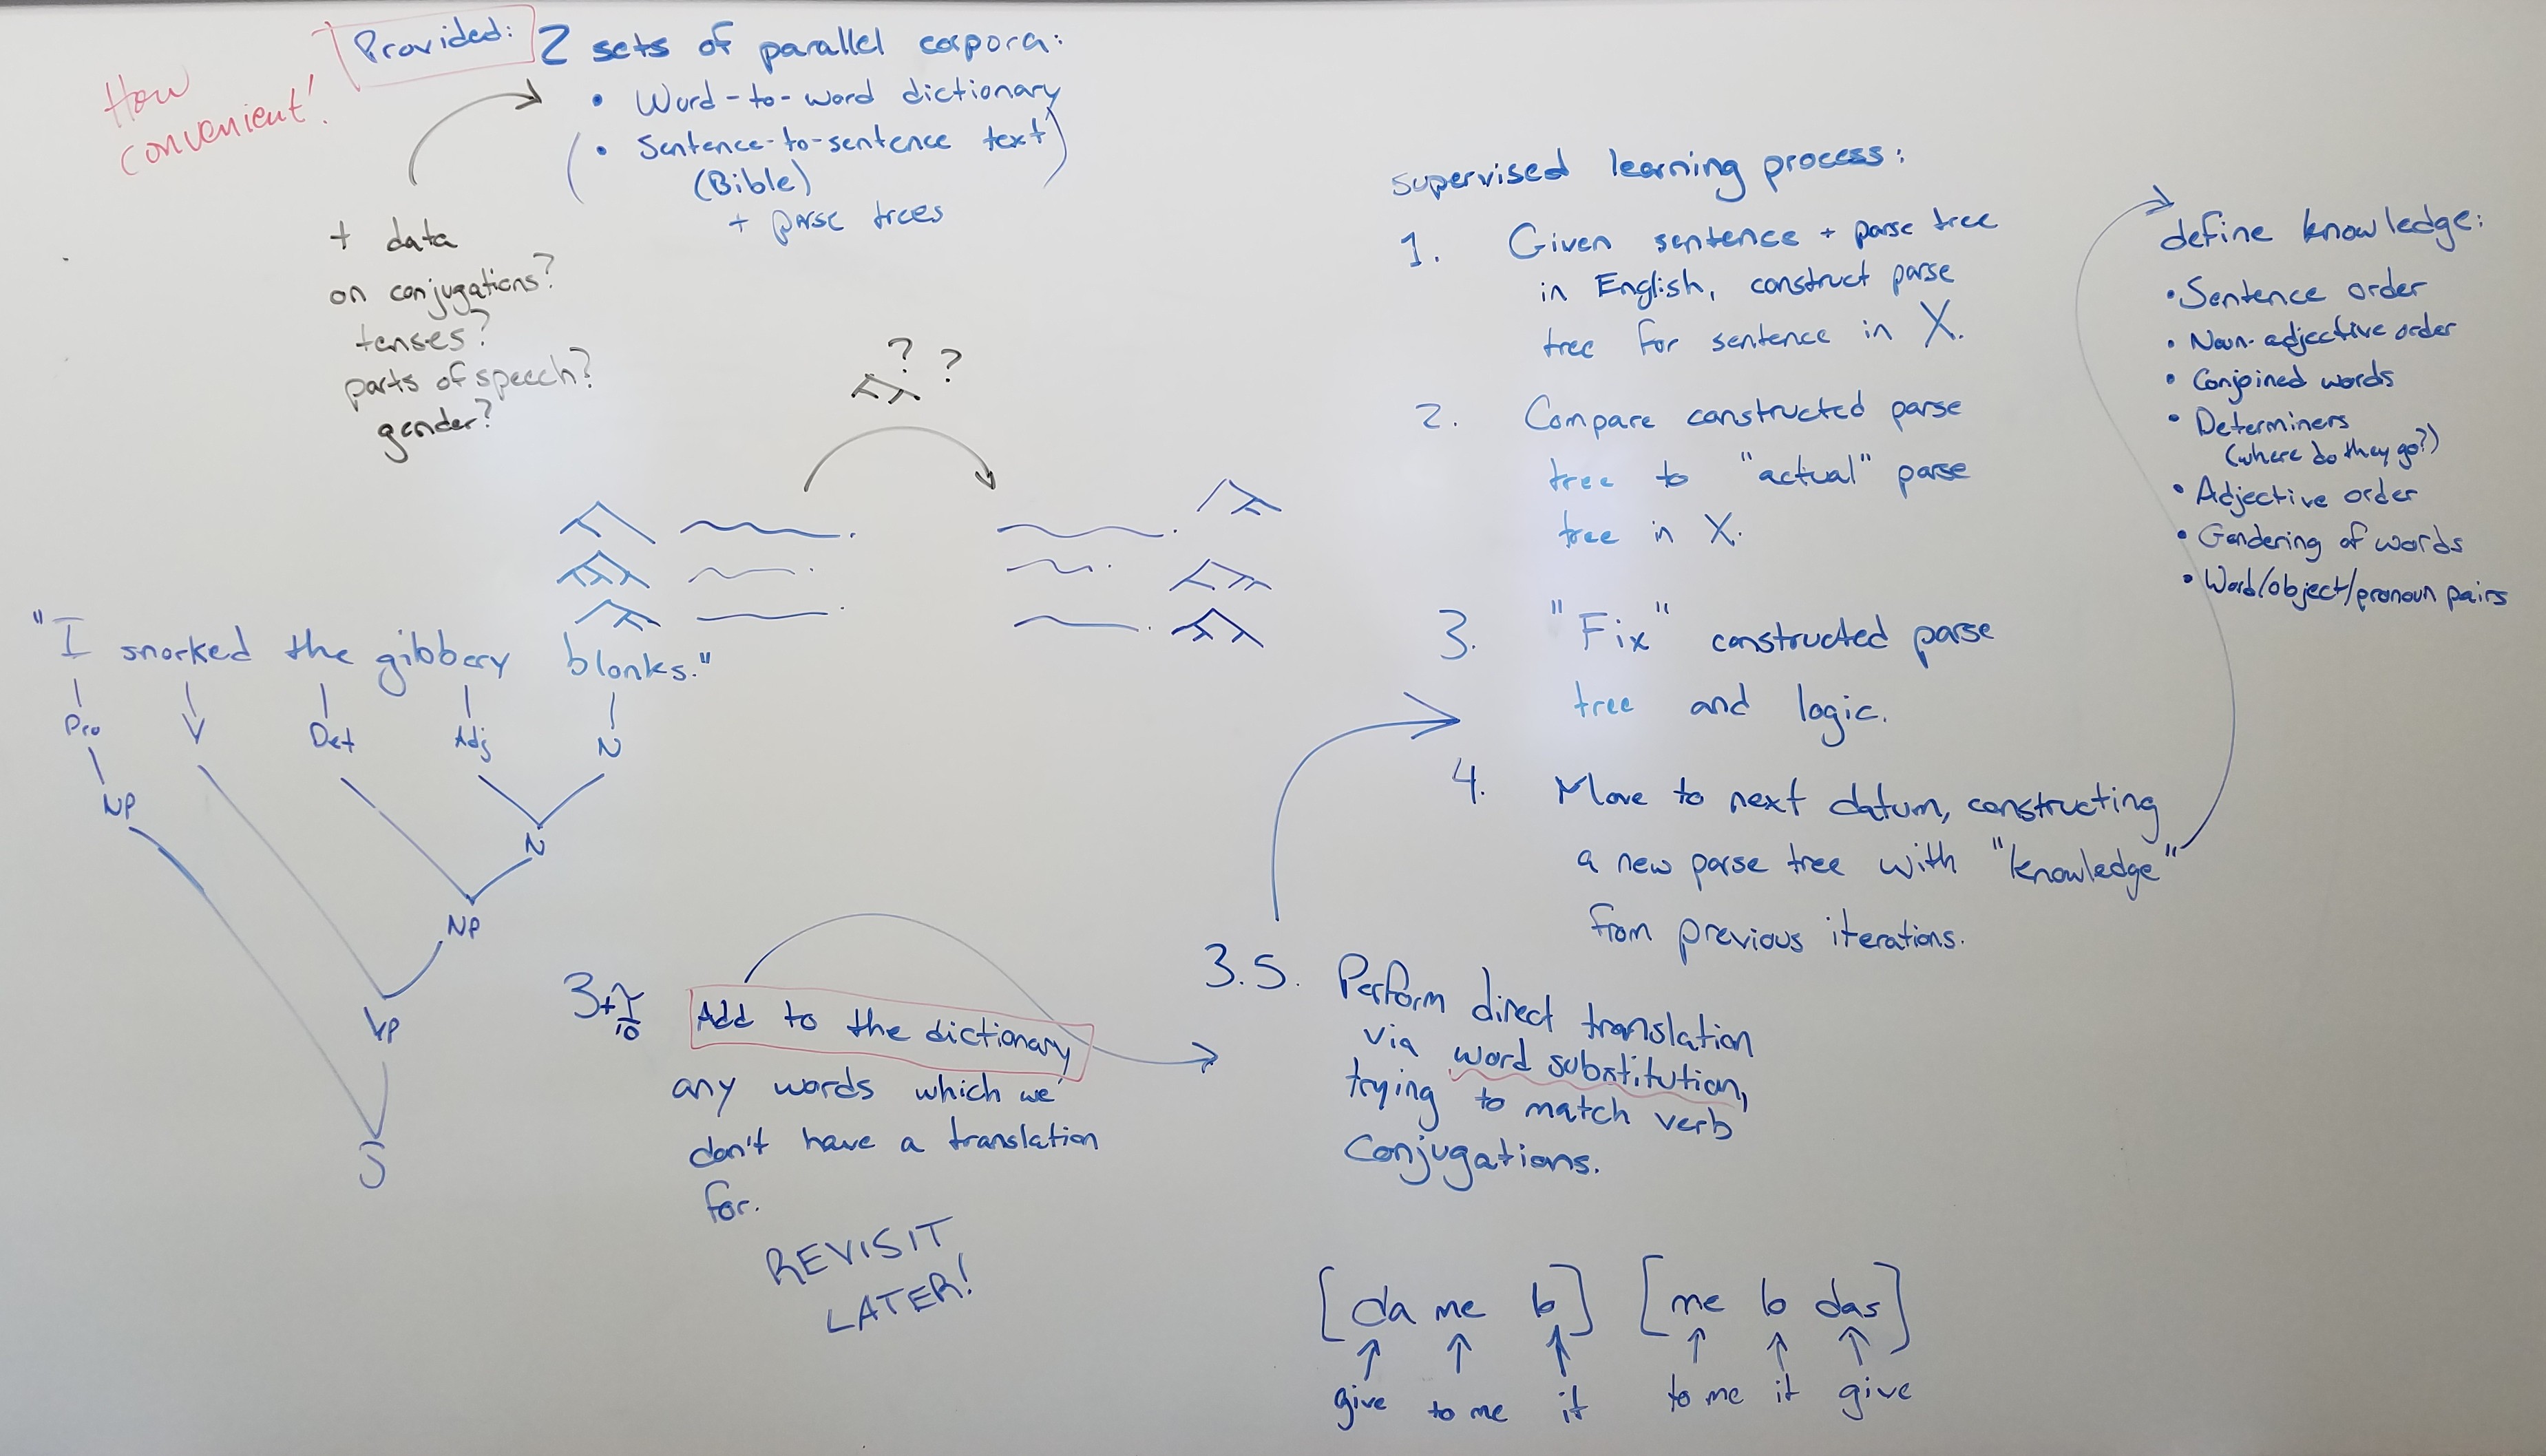 How
convenient!
Provided:
2 sets of parallel corpora:
• Word-to-word dictionary
(• Sentence-to-sentence text)
(Bible)
+ parse trees
+ data
on conjugations?
tenses?
parts of speech?
gender?
? ?
"I snorked the gibbery blonks."
Pro V Det Adj N
NP
N
NP
VP
S
supervised learning process:
1. Given sentence + parse tree
in English, construct parse
tree for sentence in X.
2. Compare constructed parse
tree to "actual" parse
tree in X.
3. "Fix" constructed parse
tree and logic.
4. Move to next datum, constructing
a new parse tree with "knowledge"
from previous iterations.
define knowledge:
• Sentence order
• Noun-adjective order
• Conjoined words
• Determiners
(where do they go?)
• Adjective order
• Gendering of words
• Word/object/pronoun pairs
Add to the dictionary
any words which we
don't have a translation
for.
REVISIT
LATER!
3.5. Perform direct translation
via word substitution,
trying to match verb
conjugations.
[da me lo] [me lo das]
give to me it to me it give